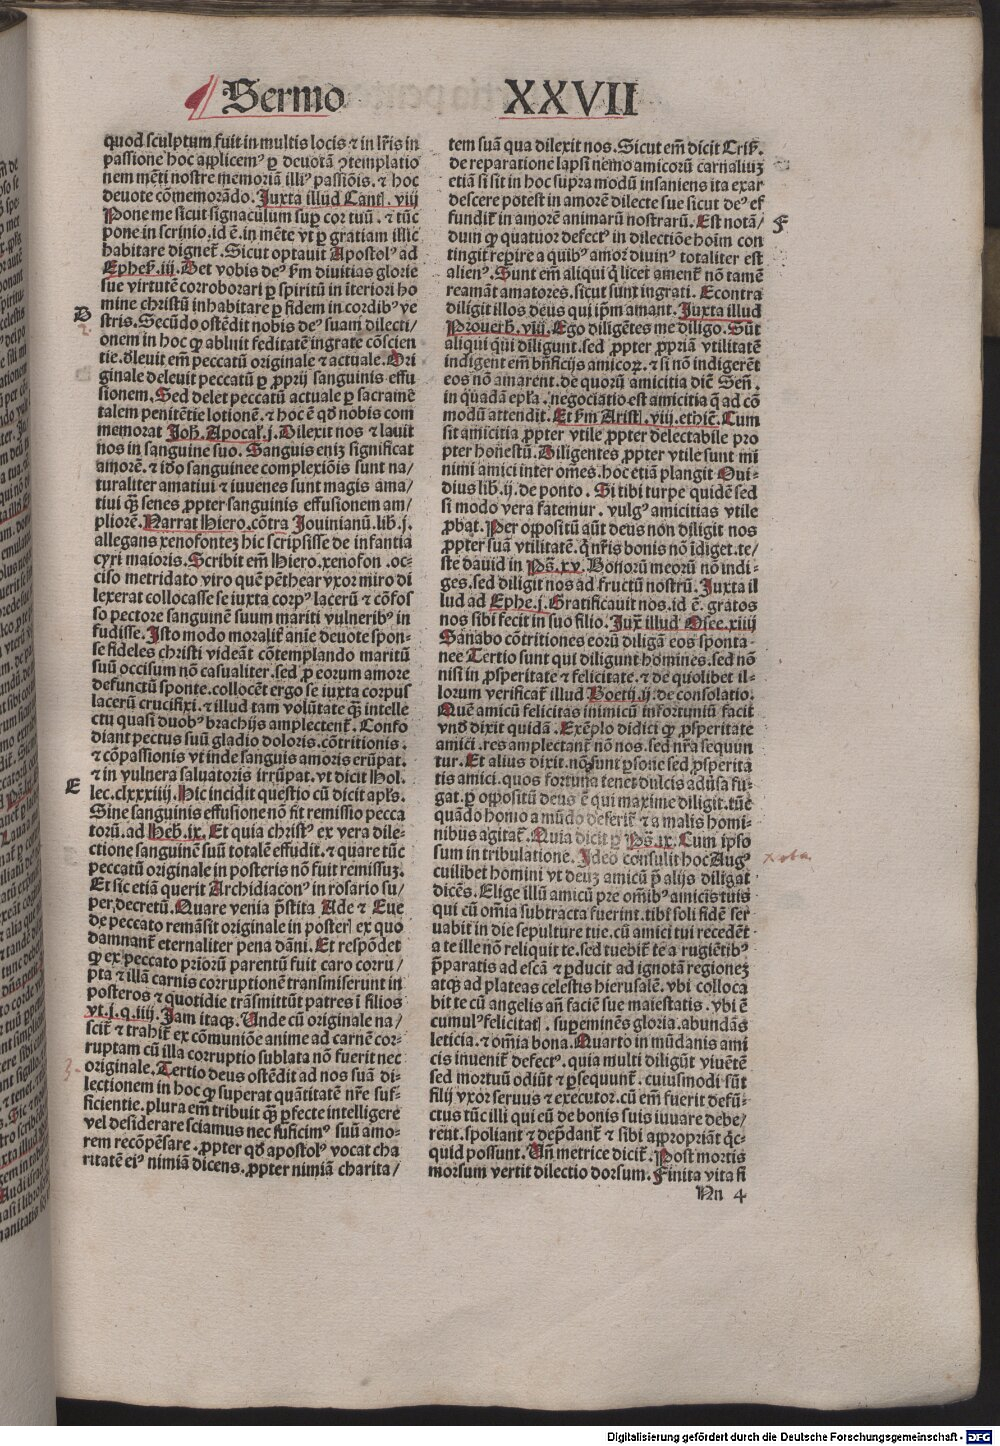 Sermo XXVII
quod sculptum fuit in multis locis ⁊ in lr̃is in
passione hoc applicemꝰ ꝑ deuotã ꝯtemplatio
nem mẽti nostre memoriã illiꝰ passiõis. ⁊ hoc
deuote cõmemorãdo. Juxta illud Cant. viij
Pone me sicut signaculum suꝑ cor tuũ. ⁊ tũc
pone in scrinio. id ẽ. in mẽte vt ꝑ gratiam illic
habitare dignet̃. Sicut optauit Apostolꝰ ad
Epheẜ. iij. Det vobis deꝰ ẜm diuitias glorie
sue virtutẽ corroborari ꝑ spiritũ in ĩteriori ho
mine christũ inhabitare ꝑ fidem in cordibꝰ ve
D
stris. Secũdo ostẽdit nobis deꝰ suam dilecti-
2.
onem in hoc ꝙ abluit feditatẽ ingrate cõscien
tie. deleuit em̃ peccatũ originale ⁊ actuale. Ori
ginale deleuit peccatũ ꝑ ꝓprij sanguinis effu
sionem. Sed delet peccatũ actuale ꝑ sacramẽ
talem penitẽtie lotionẽ. ⁊ hoc ẽ qd̃ nobis com
memorat Joh̃. Apocal̃. j. Dilexit nos ⁊ lauit
nos in sanguine suo. Sanguis eniꝫ significat
amorẽ. ⁊ iđo sanguinee complexiõis sunt na/
turaliter amatiui ⁊ iuuenes sunt magis ama/
tiui q̃ꝫ senes ꝓpter sanguinis effusionem am/
pliorẽ. Narrat Hiero. cõtra Jouinianũ. lib. j.
allegans xenofonteꝫ hic scripsisse de infantia
cyri maioris. Scribit em̃ Hiero. xenofon. oc-
ciso metridato viro quẽ pẽthear vxor miro di
lexerat collocasse se iuxta corpꝰ lacerũ ⁊ cõfos
so pectore sanguinẽ suum mariti vulneribꝰ in
fudisse. Isto modo moralit̃ anie deuote spon-
se fideles christi videãt cõtemplando maritũ
suũ occisum nõ casualiter. sed ꝓ eorum amore
defunctũ sponte. collocẽt ergo se iuxta corpus
lacerũ crucifixi. ⁊ illud tam volũtate q̃ꝫ intelle
ctu quasi duobꝰ brachijs amplectent̃. Confo
diant pectus suũ gladio doloris. cõtritionis.
⁊ cõpassionis vt inde sanguis amoris erũpat.
⁊ in vulnera saluatoris irrũpat. vt dicit Hol.
E
lec. clxxxiiij. Hic incidit questio cũ dicit apl̃s.
Sine sanguinis effusione nõ fit remissio pecca
torũ. ad Heb̃. ix. Et quia christꝰ ex vera dile-
ctione sanguinẽ suũ totalẽ effudit. ⁊ quare tũc
peccatũ originale in posteris nõ fuit remissuꝫ.
Et sic etiã querit Archidiaconꝰ in rosario su/
per decretũ. Quare venia p̃stita Ade ⁊ Eue
de peccato remãsit originale in poster̃ ex quo
damnant̃ eternaliter pena dãni. Et respõdet
ꝙ ex peccato priorũ parentũ fuit caro corru/
pta ⁊ illã carnis corruptionẽ transmiserunt in
posteros ⁊ quotidie trãsmittũt patres ĩ filios
vt. j. q. iiij. Jam itaqꝫ. Unde cũ originale na/
scit̃ ⁊ trahit̃ ex cõmuniõe anime ad carnẽ cor-
ruptam cũ illa corruptio sublata nõ fuerit nec
3.
originale. Tertio deus ostẽdit ad nos suã di-
lectionem in hoc ꝙ superat quãtitatẽ nr̃e suf-
ficientie. plura em̃ tribuit q̃ꝫ ꝑfecte intelligere
vel desiderare sciamus nec sufficimꝰ suũ amo-
rem recõpẽsare. ꝓpter qd̃ apostolꝰ vocat cha
ritatẽ eiꝰ nimiã dicens. ꝓpter nimiã charita/
tem suã qua dilexit nos. Sicut em̃ dicit Criẜ.
de reparatione lapsi nemo amicorũ carnaliuꝫ
etiã si sit in hoc supra modũ insaniens ita exar
descere potest in amorẽ dilecte sue sicut deꝰ ef
fundit̃ in amorẽ animarũ nostrarũ. Est notã/
F
dum ꝙ quatuor defectꝰ in dilectiõe hoĩm con
tingit reꝑire a quibꝰ amor diuinꝰ totaliter est
alienꝰ. Sunt em̃ aliqui q̃ licet ament̃ nõ tamẽ
reamãt amatores. sicut sunt ingrati. Econtra
diligit illos deus qui ip̃m amant. Juxta illud
Prouerb̃. viij. Ego diligẽtes me diligo. Sũt
aliqui q̃ui diligunt. sed ꝓpter ꝓpriã vtilitatẽ
indigent em̃ bñficijs amicoꝝ. ⁊ si nõ indigerẽt
eos nõ amarent. de quorũ amicitia dic̃ Sen̄.
in q̃uadã epl̃a. negociatio est amicitia q̃ ad cõ
modũ attendit. Et ẜm Arist̃. viij. ethic̃. Cum
sit amicitia ꝓpter vtile ꝓpter delectabile pro
pter honestũ. Diligentes ꝓpter vtile sunt mi
nimi amici inter om̃es. hoc etiã plangit Oui-
dius lib. ij. de ponto. Si tibi turpe quidẽ sed
si modo vera fatemur. vulgꝰ amicitias vtile
ꝓbat. Per oppositũ aũt deus non diligit nos
ꝓpter suã vtilitatẽ. q̃ nr̃is bonis nõ ĩdiget. te/
ste dauid in Ps̃. xv. Bonorũ meorũ nõ indi-
ges. sed diligit nos ad fructũ nostrũ. Juxta il
lud ad Ephe. j. Gratificauit nos. id ẽ. gratos
nos sibi fecit in suo filio. Jux̃ illud Osee. xiiij
Sanabo cõtritiones eorũ diligã eos sponta-
nee Tertio sunt qui diligunt homines. sed nõ
nisi in ꝓsperitate ⁊ felicitate. ⁊ de quolibet il-
lorum verificat̃ illud Boetij. ij. de consolatio.
Quẽ amicũ felicitas inimicũ infortuniũ facit
vnd̃ dixit quidã. Exẽplo didici ꝙ ꝓsperitate
amici. res amplectant̃ nõ nos. sed nr̃a sequun
tur. Et alius dixit. nõ sunt ꝑsone sed ꝓsperita
tis amici. quos fortuna tenet dulcis aduersa fu-
gat. ꝑ oppositũ deus ẽ qui maxime diligit. tũc
quãdo homo a mũdo deserit̃ ⁊ a malis homi-
nibus agitat̃. Quia dicit ꝑ Ps̃. ix. Cum ip̃so
sum in tribulatione. Ideo consulit hoc Augꝰ
cuilibet homini vt deuꝫ amicũ p̃ alijs diligat
dicẽs. Elige illũ amicũ pre om̃ibꝰ amicis tuis
qui cũ om̃ia subtracta fuerint. tibi soli fidẽ ser
uabit in die sepulture tue. cũ amici tui recedẽt
a te ille nõ reliquit te. sed tuebit̃ te a rugiẽtibꝰ
p̃paratis ad escã ⁊ ꝑducit ad ignotã regioneꝫ
atqꝫ ad plateas celestis hierusalẽ. vbi colloca
bit te cũ angelis an̄ faciẽ sue maiestatis. vbi ẽ
cumulꝰ felicitat̃. suꝑeminẽs gloria. abundãs
leticia. ⁊ om̃ia bona. Quarto in mũdanis ami
cis inuenit̃ defectꝰ. quia multi diligũt viuẽtẽ
sed mortuũ odiũt ⁊ ꝑsequunt̃. cuiusmodi sũt
filij vxor seruus ⁊ executor. cũ em̃ fuerit defũ-
ctus tũc illi qui eũ de bonis suis iuuare debe/
rent. spoliant ⁊ dep̃dant̃ ⁊ sibi appropriãt q̃c-
quid possunt. Un̄ metrice dicit̃. Post mortis
morsum vertit dilectio dorsum. Finita vita fi
Nn 4
Digitalisierung gefördert durch die Deutsche Forschungsgemeinschaft - DFG